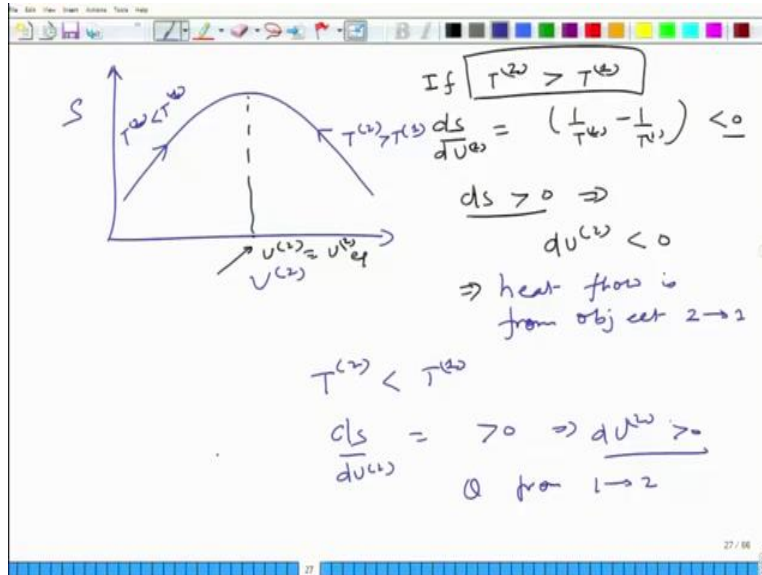 File Edit View Insert Actions Tools Help
S
T⁽²⁾ < T⁽¹⁾
T⁽²⁾ > T⁽¹⁾
U⁽²⁾ = U⁽²⁾eq
U⁽²⁾
If T⁽²⁾ > T⁽¹⁾
ds/dU⁽²⁾ = (1/T⁽²⁾ - 1/T⁽¹⁾) < 0
ds > 0 ⇒
dU⁽²⁾ < 0
⇒ heat flow is
from object 2→1
T⁽²⁾ < T⁽¹⁾
ds/dU⁽²⁾ = > 0 ⇒ dU⁽²⁾ > 0
Q from 1→2
27 / 66
27